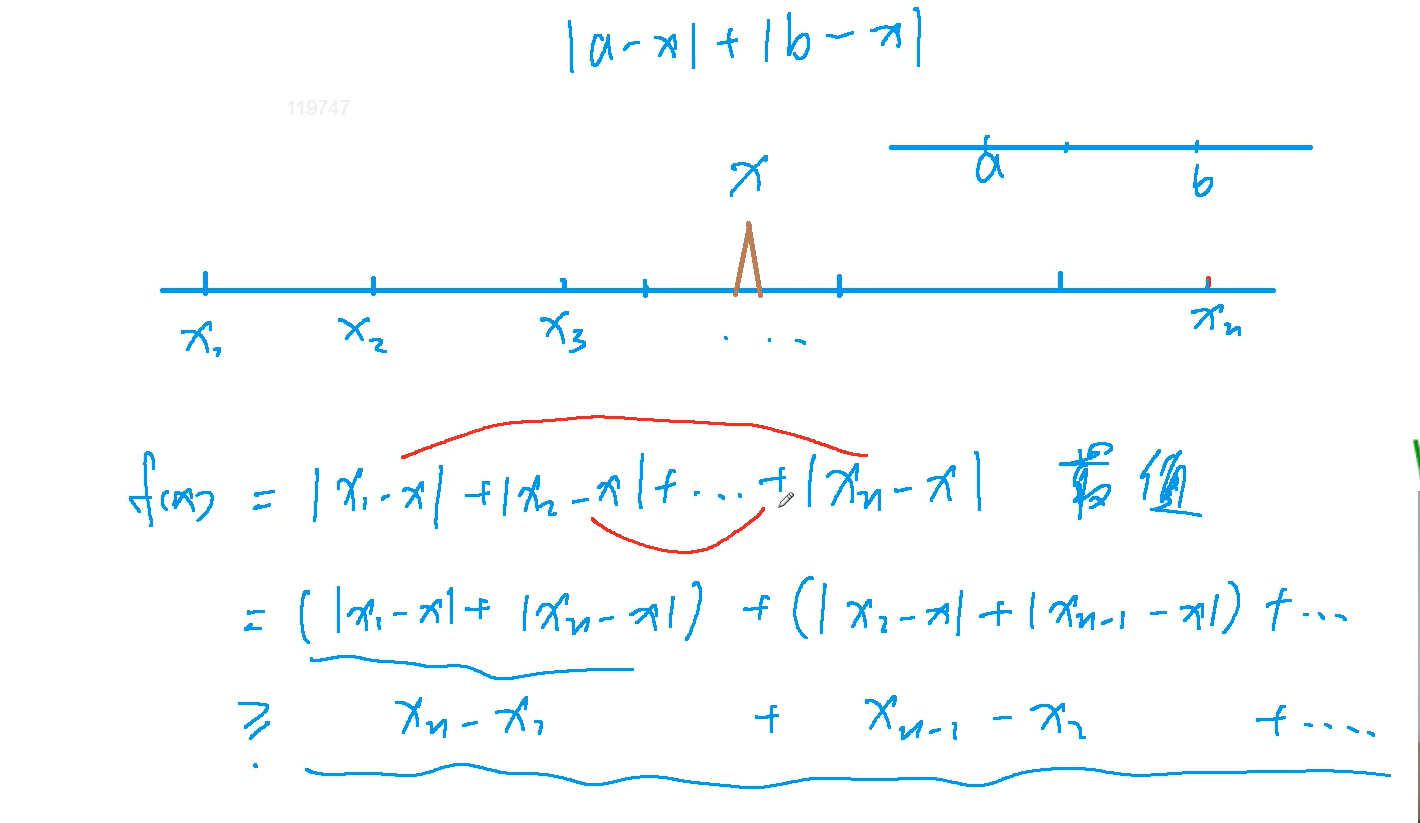 |a-x| + |b-x|
119747
x
a b
x₁ x₂ x₃ ... xₙ
f(x) = |x₁-x| + |x₂-x| + ... + |xₙ-x| 最值
= (|x₁-x| + |xₙ-x|) + (|x₂-x| + |xₙ₋₁-x|) + ...
≥ xₙ-x₁ + xₙ₋₁-x₂ + ....